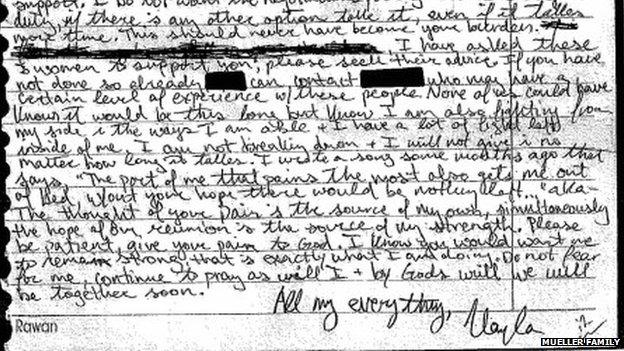 support, I do not want the
duty, if there is any other option take it, even if it takes
more time. This should never have become your burden.
I have asked these
women to support you; please seek their advice. If you have
not done so already, can contact who may have a
certain level of experience w/ these people. None of us could have
known it would be this long but know I am also fighting from
my side in the ways I am able + I have a lot of fight left
inside of me. I am not breaking down + I will not give in no
matter how long it takes. I wrote a song some months ago that
says, "The part of me that pains the most also gets me out
of bed, w/out your hope there would be nothing left..." aka-
The thought of your pain is the source of my own, simultaneously
the hope of our reunion is the source of my strength. Please
be patient, give your pain to God. I know you would want me
to remain strong. That is exactly what I am doing. Do not fear
for me, continue to pray as will I + by God's will we will
be together soon.
All my everything,
Kayla
Rawan
MUELLER FAMILY